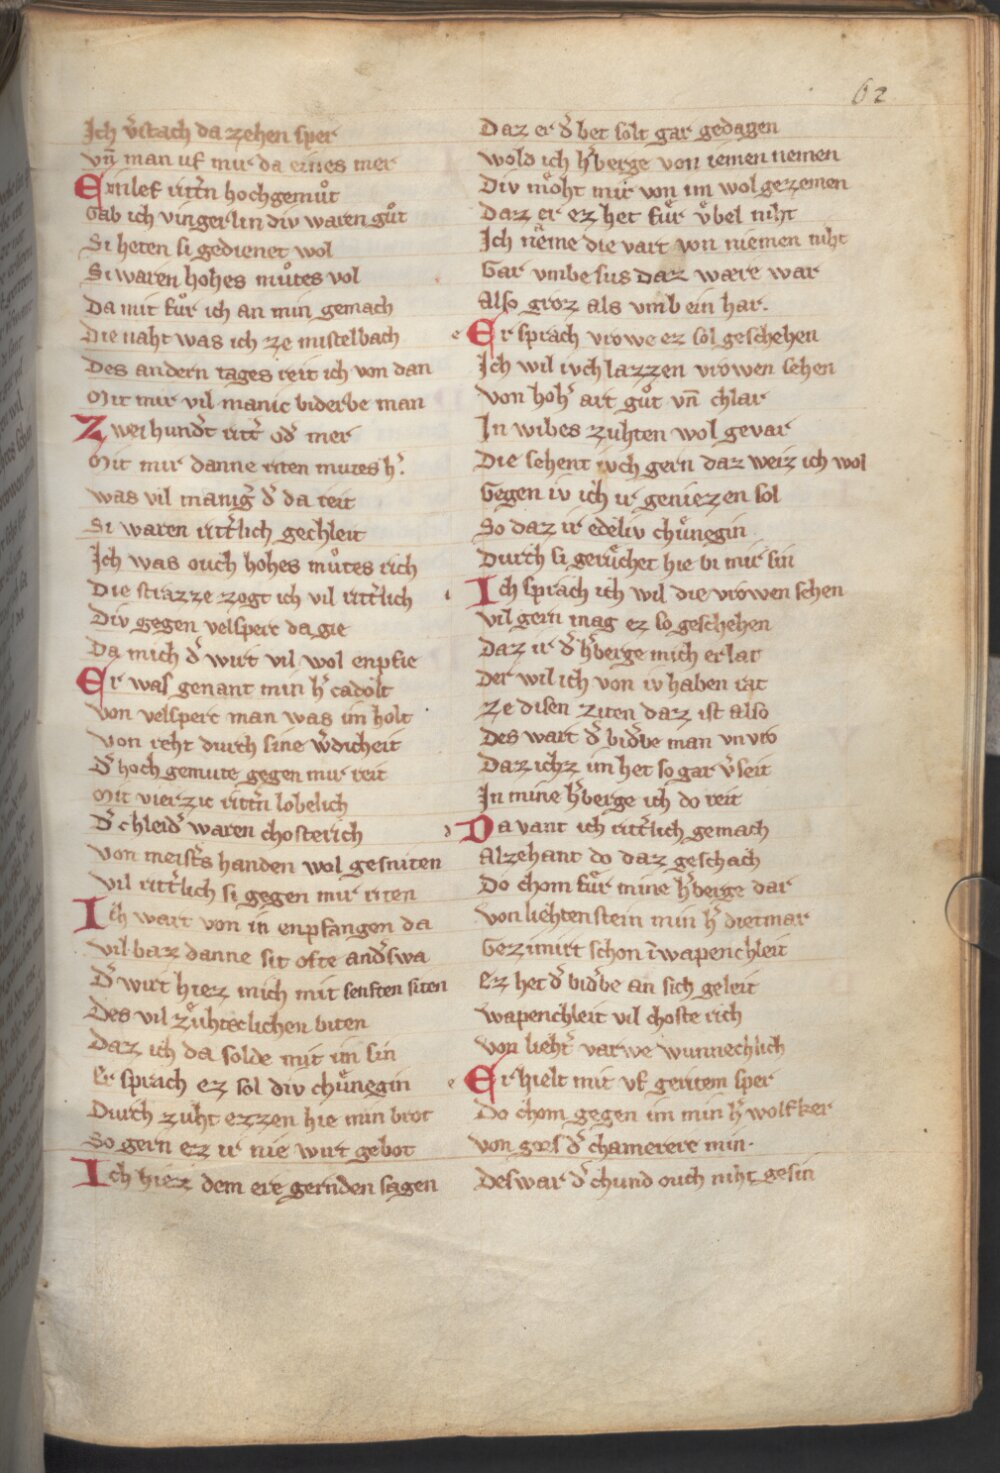 62
Ich v̾stach da zehen sper
Vn̄ man uf mir da eines mer
Einlef ritt̾n hochgemuͦt
Gab ich vingerlin div waren guͦt
Si heten si gedienet wol
Si waren hohes muͦtes vol
Da mit fuͦr ich an min gemach
Die naht was ich ze mistelbach
Des andern tages reit ich von dan
Mit mir vil manic biderbe man
Zwei hund̾t ritt̾ od̾ mer
Mit mir danne riten mutes h̾.
was vil manig̾ d̾ da reit
Si waren ritt̾lich gechleit
Ich was ouch hohes muͦtes rich
Die strazze zogt ich vil ritt̾lich
Div gegen velsperc da gie
Da mich d̾ wirt vil wol enpfie
Er was genant min h̾ cadolt
Von velsperc man was im holt
Von reht durch sine w̾dicheit
D̾ hoch gemute gegen mir reit
Mit vierzic ritt̾n lobelich
D̾ chleid̾ waren chosterich
Von meist̾s handen wol gesniten
Vil ritt̾lich si gegen mir riten
Ich wart von in enpfangen da
Vil baz danne sit ofte and̾swa
D̾ wirt hiez mich mit senften siten
Des vil zuͤhteclichen biten
Daz ich da solde mit im sin
Er sprach ez sol div chuͤnegin
Durch zuht ezzen hie min brot
So gern ez ir nie wirt gebot
Ich hiez dem ere gernden sagen
Daz er d̾ bet solt gar gedagen
Wold ich h̾berge von iemen nemen
Div moͤht mir von im wol gezemen
Daz er ez het fuͤr vͤbel niht
Ich neͤme die vart von niemen niht
Gar vmbe sus daz wære war
Also groz als vmb ein har.
e Er sprach vrowe ez sol geschehen
Ich wil ivch lazzen vrowen sehen
Von hoh̾ art guͦt vn̄ chlar
In wibes zuhten wol gevar
Die sehent ivch gern daz weiz ich wol
Gegen iv ich ir geniezen sol
So daz ir edeliv chuͤnegin
Durch si geruͤchet hie bi mir sin
i Ich sprach ich wil die vrowen sehen
Vil gern mag ez so geschehen
Daz ir d̾ h̾berge mich erlat
Der wil ich von iv haben rat
Ze disen ziten daz ist also
Des wart d̾ bid̾be man vnvro
Daz ichz im het so gar v̾seit
In mine h̾berge ich do reit
d Da vant ich ritt̾lich gemach
Alzehant do daz geschach
Do chom fuͤr mine h̾berge dar
Von liehtenstein min h̾ dietmar
Gezimirt schon ī wapenchleit
Ez het d̾ bid̾be an sich geleit
Wapenchleit vil choste rich
Von lieht̾ varwe wunnechlich
e Er hielt mit vf gerihtem sper
Do chom gegen im min h̾ wolfker
Von gors d̾ chamerere min.
Deswar d̾ chund ouch niht gesin